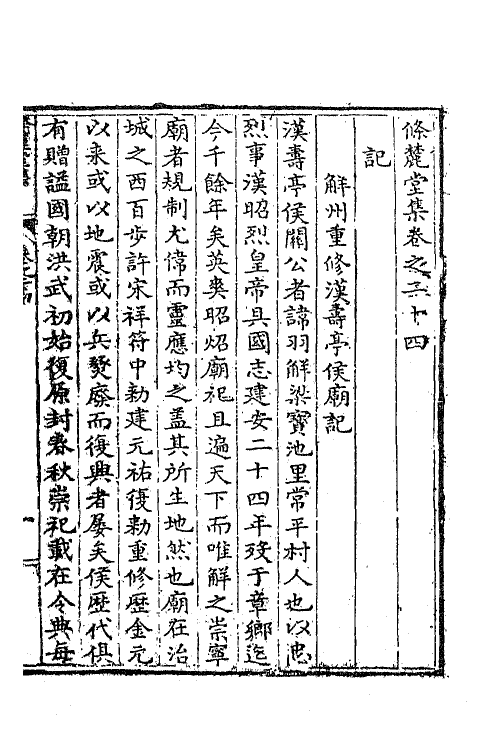 條麓堂集卷之二十四
記
解州重修漢壽亭侯廟記
漢壽亭侯關公者諱羽解梁寶池里常平村人也以忠
烈事漢昭烈皇帝具國志建安二十四年歿于章鄉迄
今千餘年矣英爽昭炤廟祀且遍天下而唯解之崇寧
廟者規制尤偉而靈應均之盖其所生地然也廟在治
城之西百步許宋祥符中勅建元祐復勑重修歷金元
以来或以地震或以兵燹廢而復興者屢矣侯歷代俱
有贈謚國朝洪武初始復原封春秋崇祀載在令典每